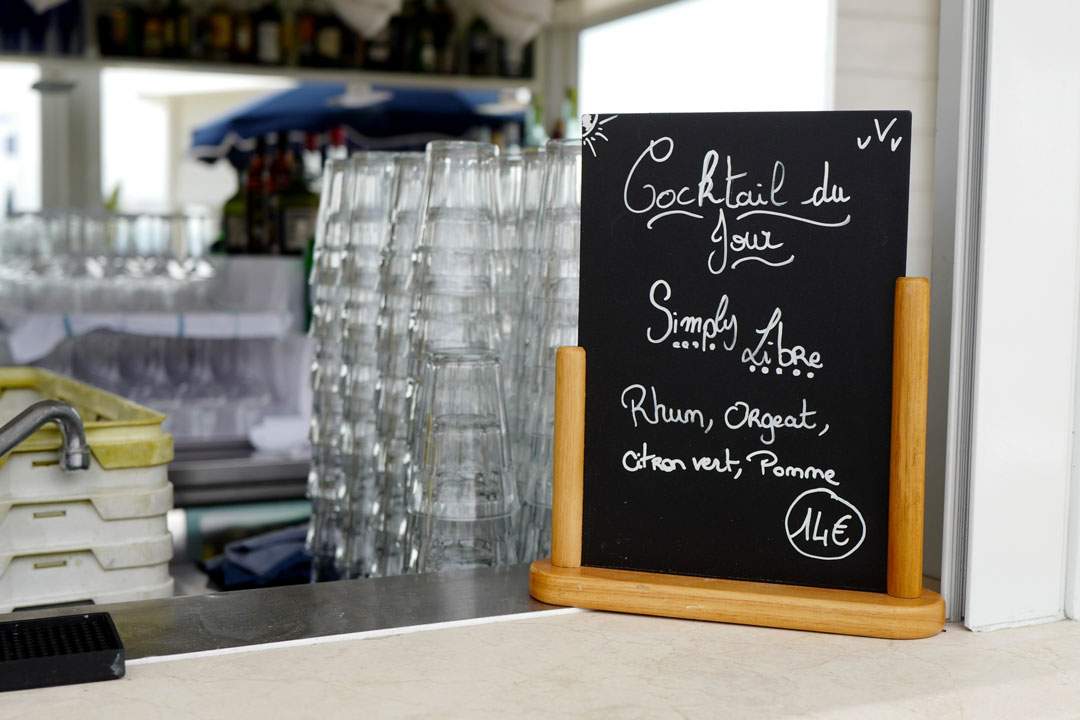 Cocktail du
Jour
Simply Libre
Rhum, Orgeat,
citron vert, Pomme
14€